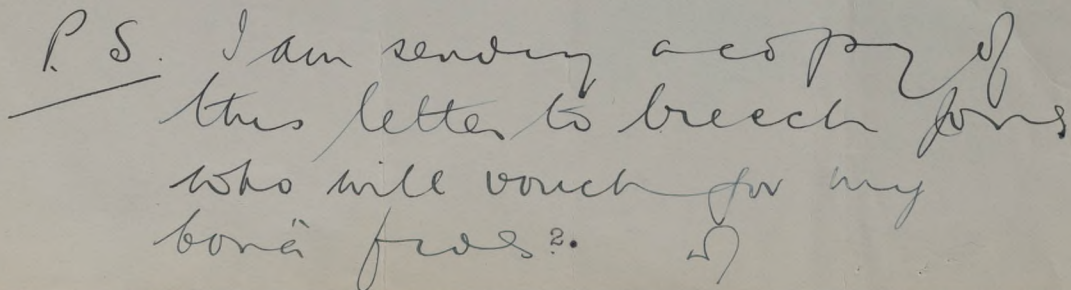 P.S. I am sending a copy of
this letter to Creech Jones
who will vouch for my
bonâ fides?.